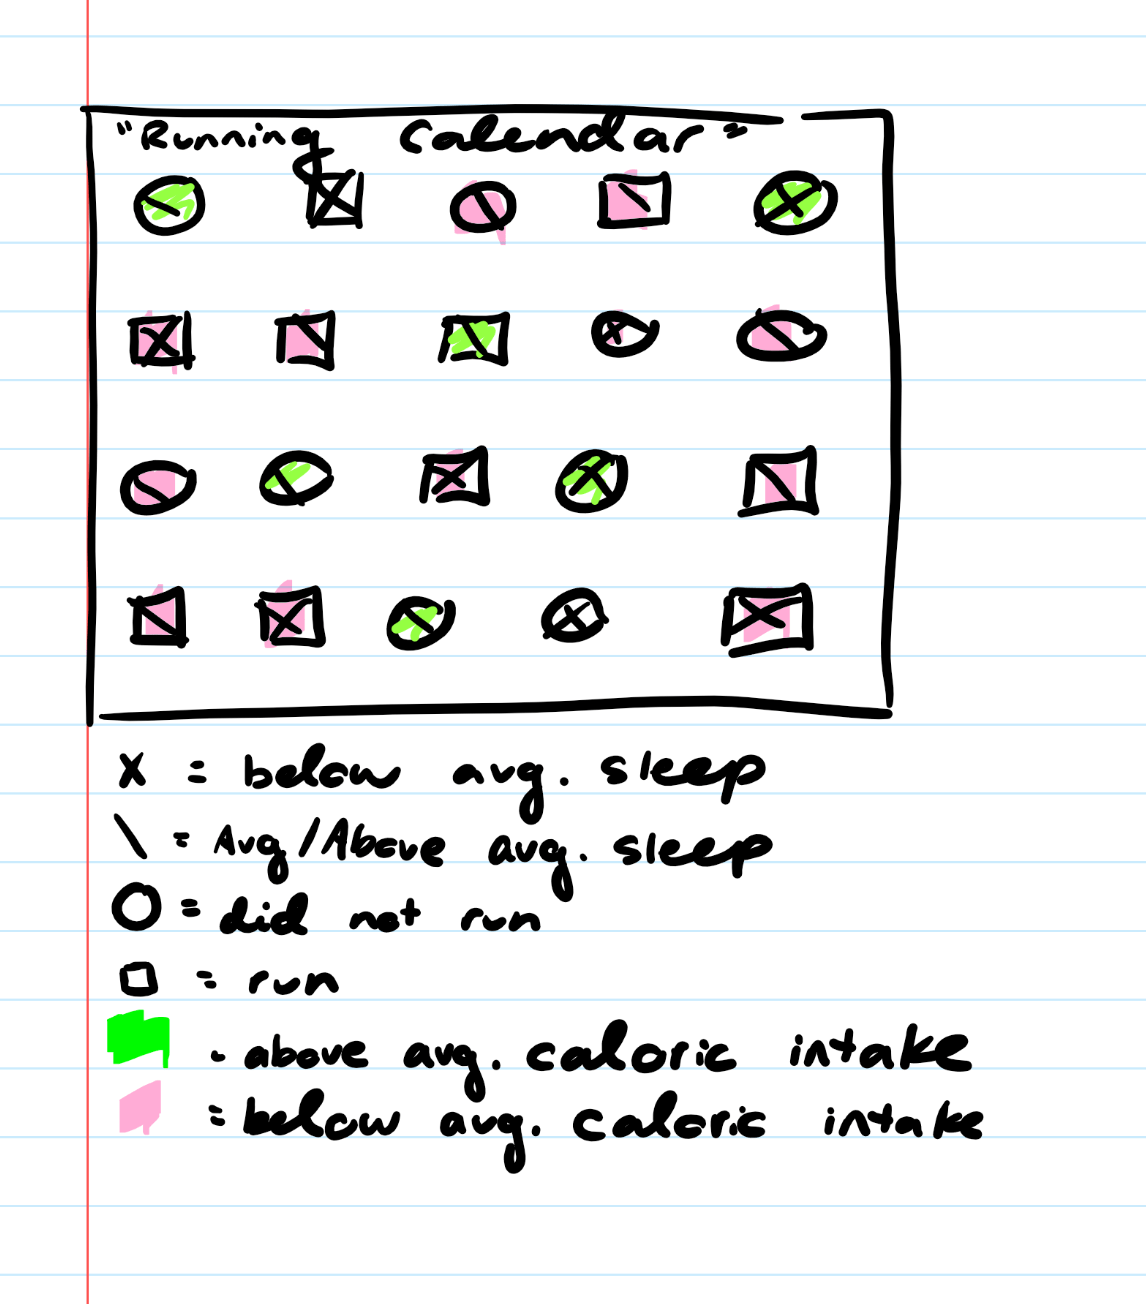 "Running Calendar"
X = below avg. sleep
\ = Avg/Above avg. sleep
O = did not run
□ = run
- above avg. caloric intake
= below avg. caloric intake